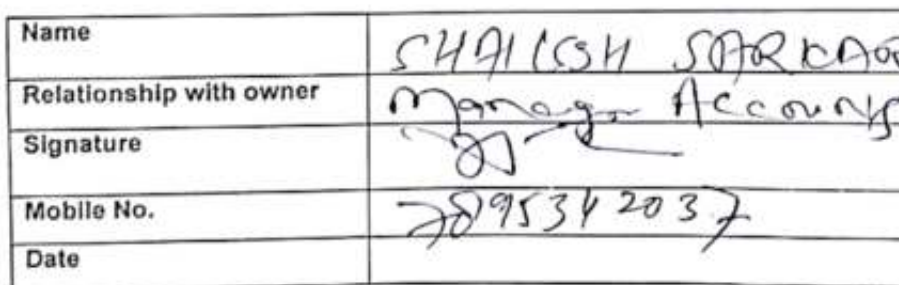 Name SHAILSH SARKAR
Relationship with owner Manager Accounts
Signature
Mobile No. 7895342037
Date